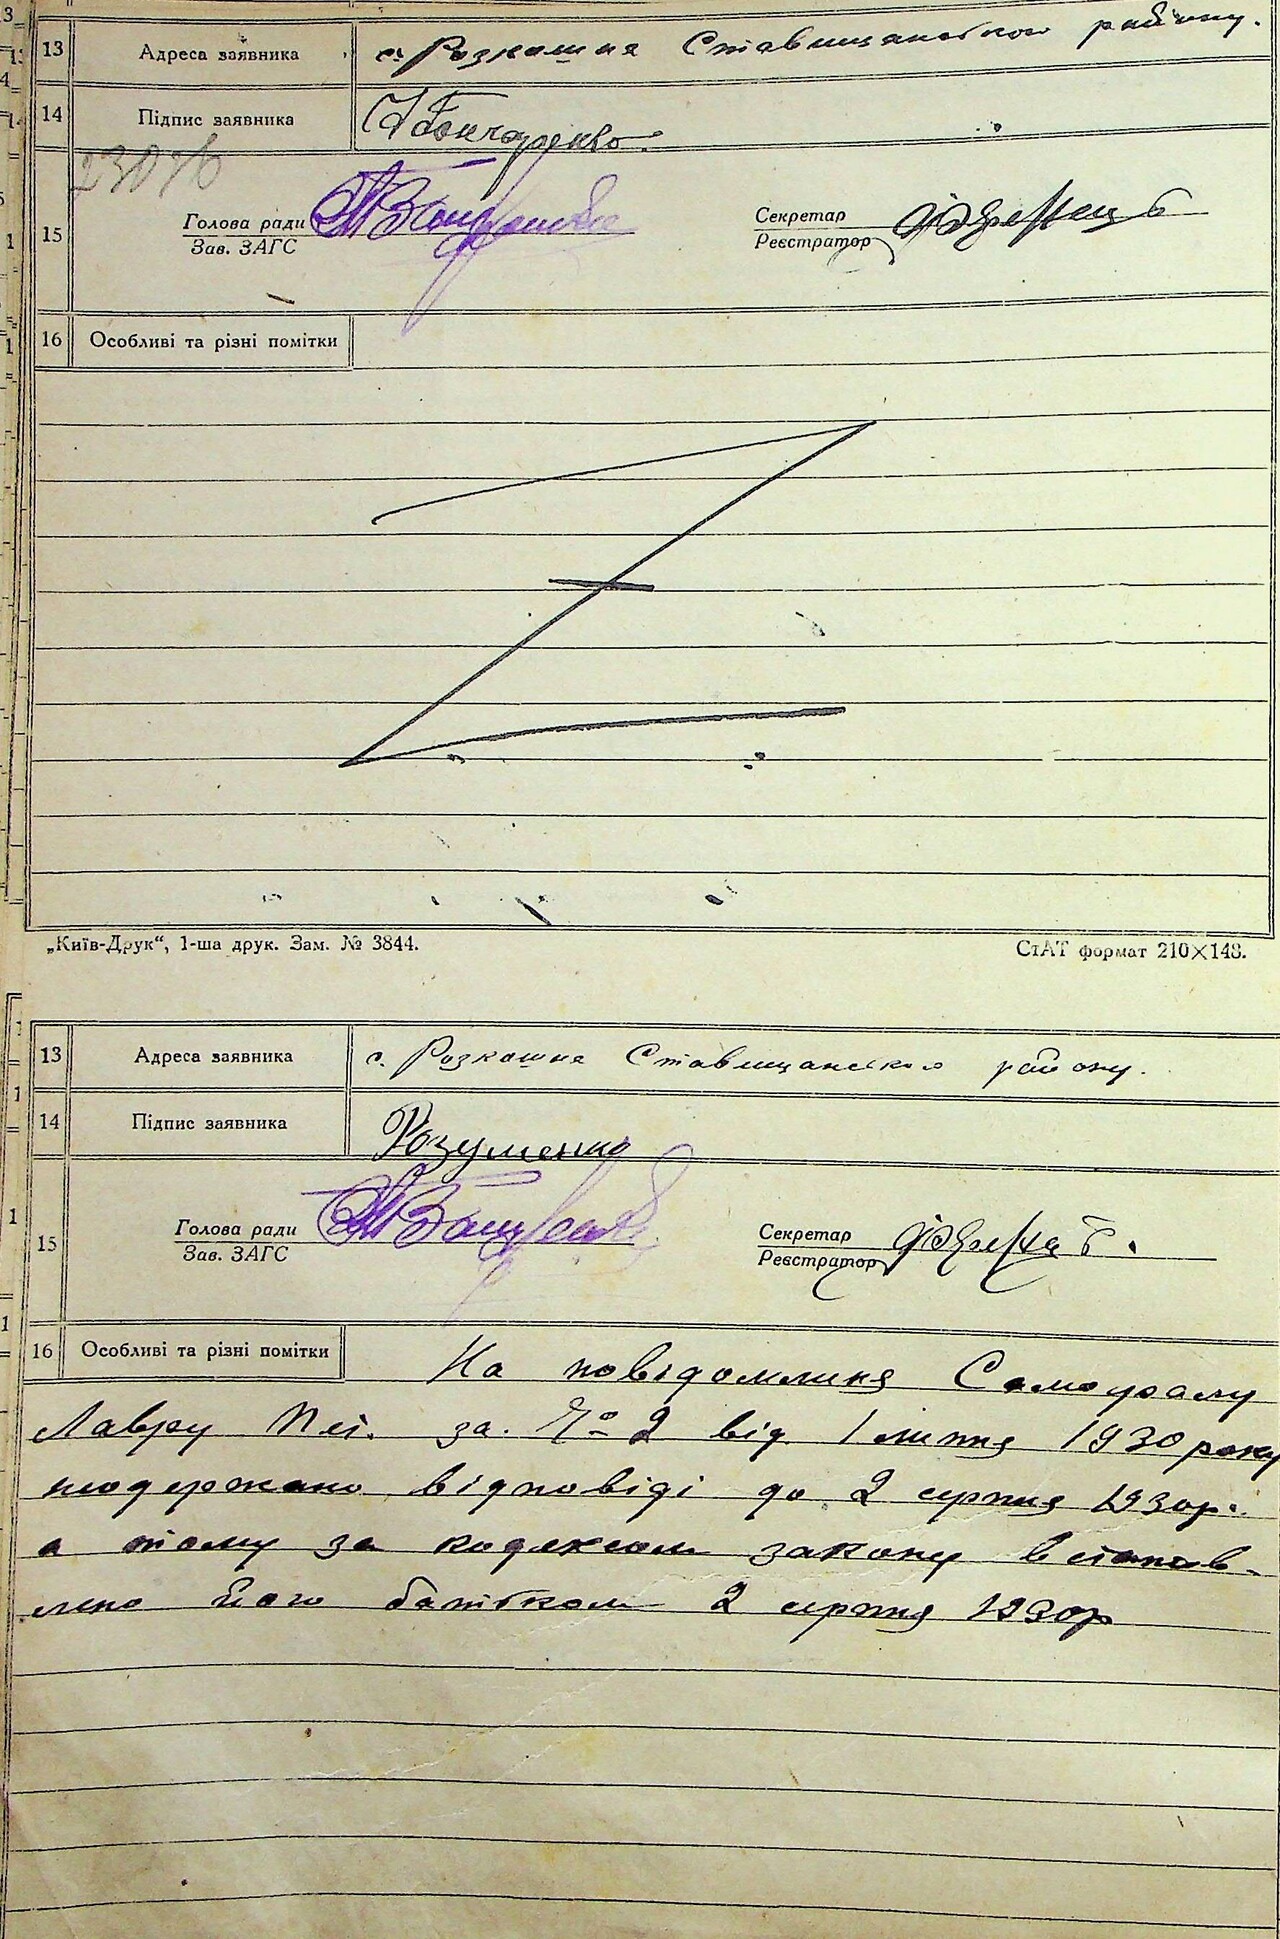 13 Адреса заявника с. Розкошна Ставищанського району.
14 Підпис заявника Гончаренко
23076
15 Голова ради Секретар
Зав. ЗАГС Реєстратор
16 Особливі та різні помітки
„Київ-Друк“, 1-ша друк. Зам. № 3844. СтАТ формат 210×148.
13 Адреса заявника с. Розкошна Ставищанського району.
14 Підпис заявника Розуменко
15 Голова ради Секретар
Зав. ЗАГС Реєстратор
16 Особливі та різні помітки На повідомлиня
Лавру за. № 2 від 1 липня 1930 року
неодержано відповіді до 2 серпня 1930р.
а тому за кодексом закону встанов-
лено його батьком 2 серпня 1930р